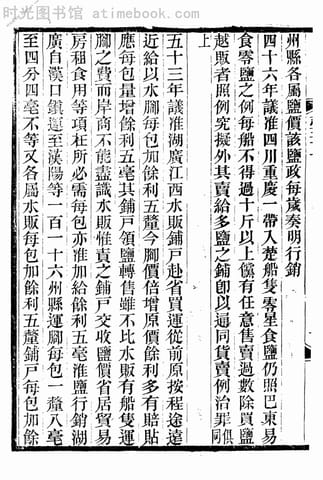 时光图书馆 - atimebook.com
州縣各屬鹽價該鹽政每歲奏明行銷
四十六年議准四川重慶一帶入楚船隻零星食鹽仍照巴東易
食零鹽之例每船不得過十斤以上儻有任意售賣過數除買鹽
越販者照例究擬外其賣給多鹽之鋪卽以通同貨賣例治罪俱同
上
五十三年議准湖廣江西水販鋪戸赴省買運從前原按程途遠
近給以水腳每包加餘利五釐今腳價倍增原價餘利多有賠貼
應每包量增餘利五毫其鋪戸領鹽轉售雖不比水販有船隻運
腳之費而岸商不能盡識水販惟責之鋪戸交收鹽價省居貿易
房租食用等項在所必需每包亦准加給餘利五毫淮鹽行銷湖
廣自漢口鎭運至漢陽等一百一十六州縣運腳每包一釐八毫
至四分四毫不等又各屬水販每包加餘利五釐鋪戸每包加餘